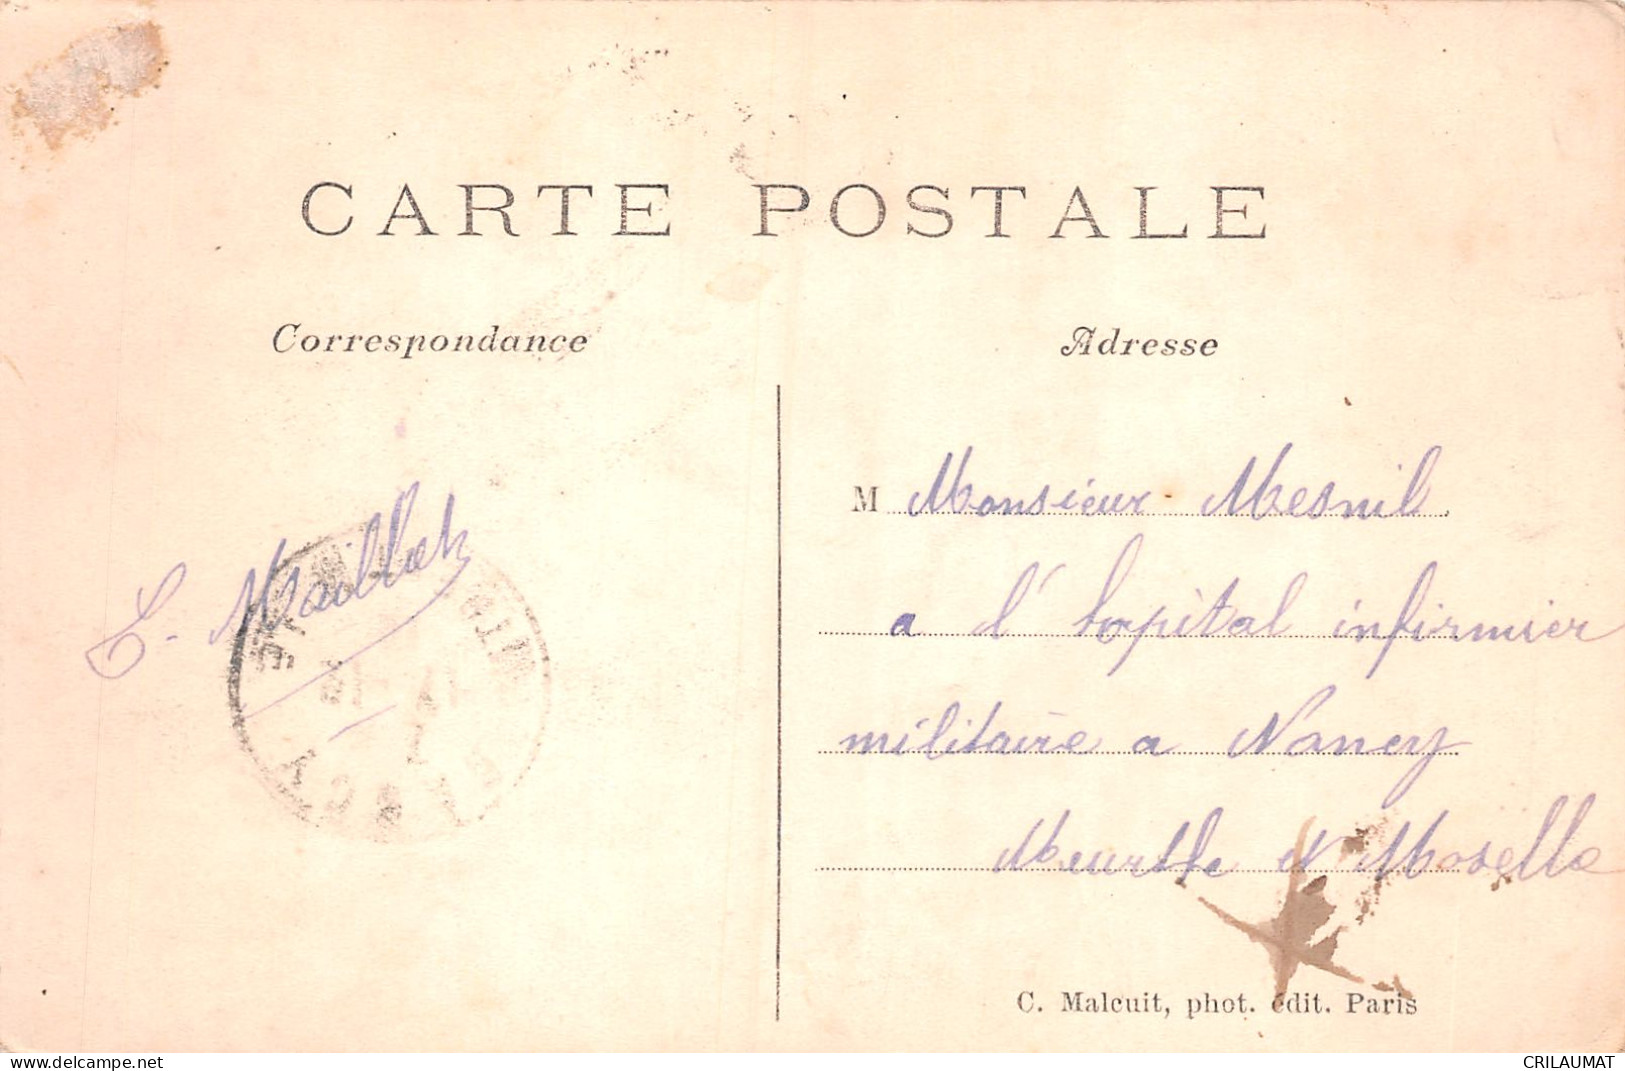 CARTE POSTALE
Correspondance
Adresse
M Monsieur Mesnil
a l'hopital infirmier
militaire a Nancy
Meurthe et Moselle
NANCY
C. Malcuit, phot. édit. Paris
www.delcampe.net
CRILAUMAT